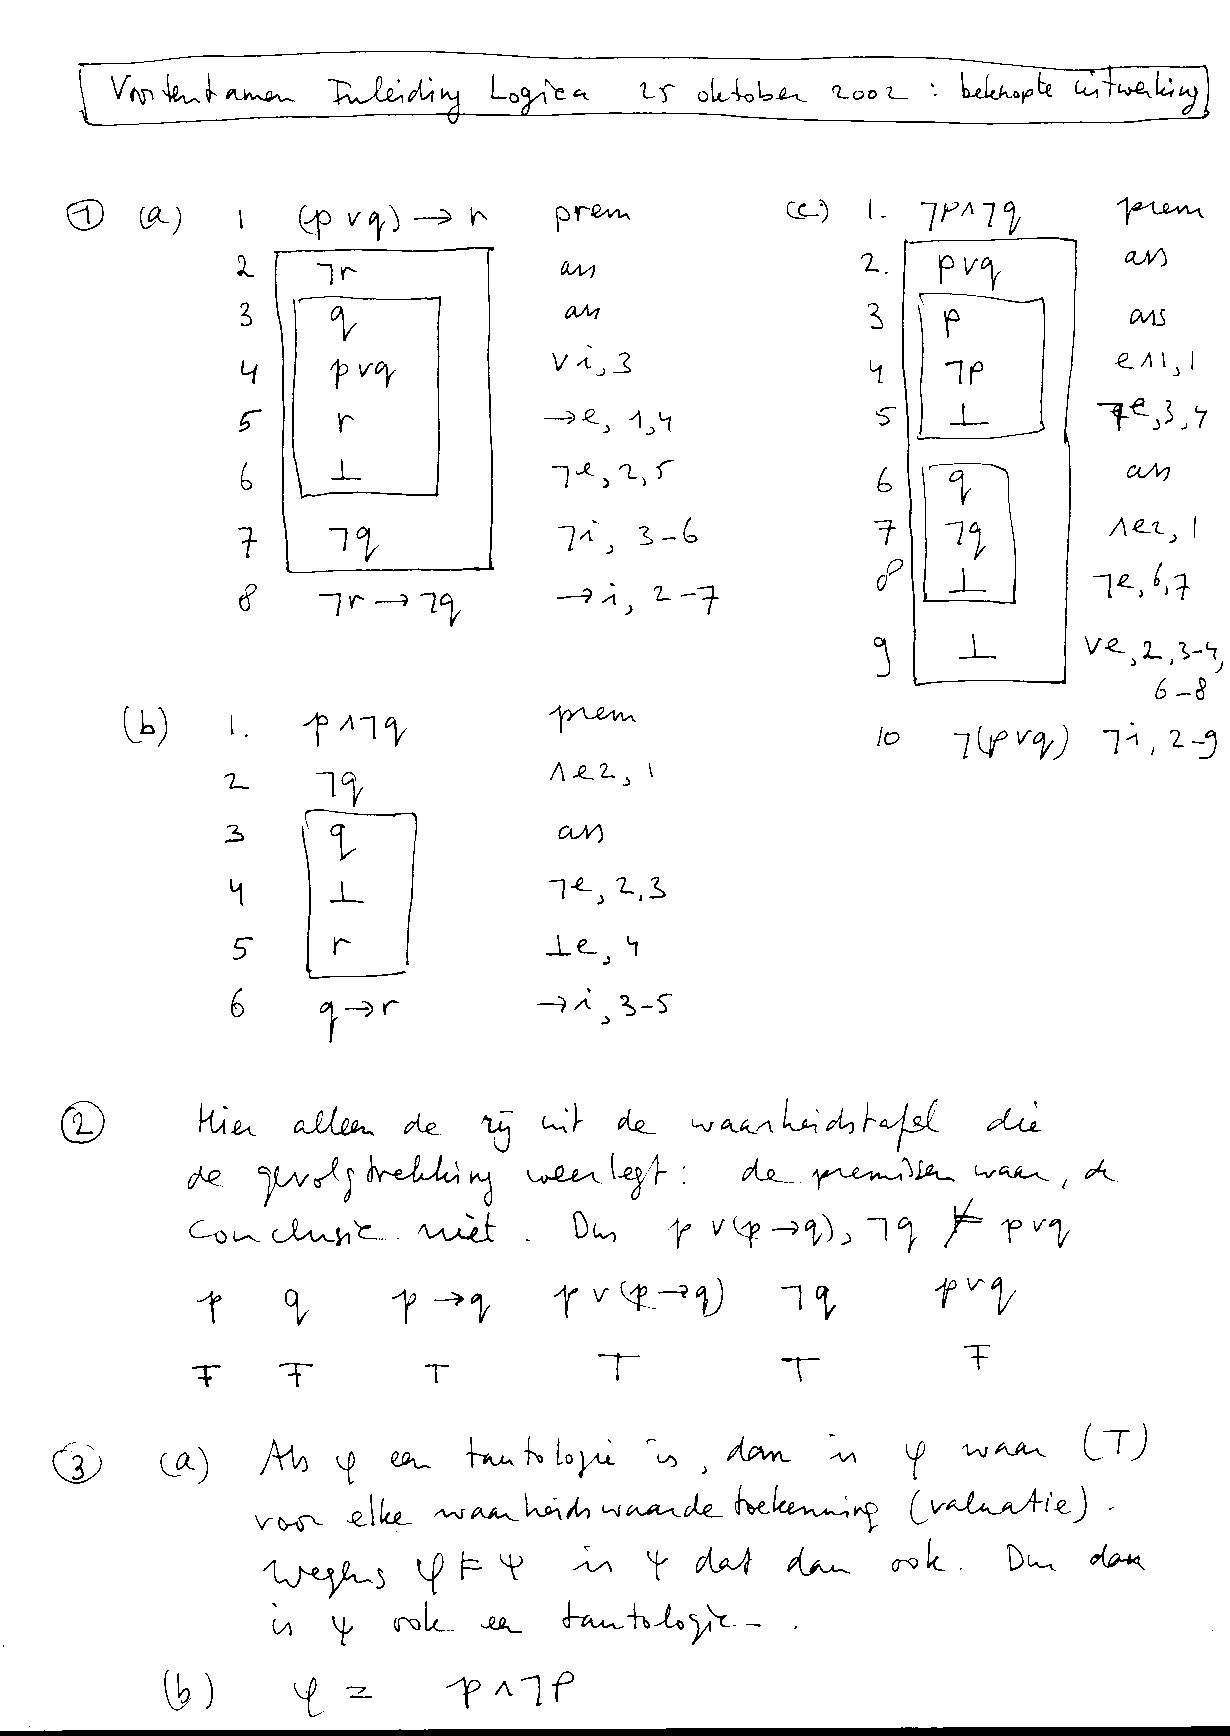 Voortentamen Inleiding Logica 25 oktober 2002 : beknopte uitwerking
① (a) 1 (p ∨ q) → r prem
2 ¬r ass
3 q ass
4 p∨q ∨i, 3
5 r →e, 1,4
6 ⊥ ¬e, 2,5
7 ¬q ¬i, 3-6
8 ¬r → ¬q →i, 2-7
(b) 1. p∧¬q prem
2 ¬q ∧e2, 1
3 q ass
4 ⊥ ¬e, 2,3
5 r ⊥e, 4
6 q→r →i, 3-5
(c) 1. ¬p∧¬q prem
2. p∨q ass
3 p ass
4 ¬p e∧1, 1
5 ⊥ ¬e, 3,4
6 q ass
7 ¬q ∧e2, 1
8 ⊥ ¬e, 6,7
9 ⊥ ∨e, 2, 3-4,
6-8
10 ¬(p∨q) ¬i, 2-9
② Hier alleen de rij uit de waarheidstafel die
de gevolgtrekking weerlegt: de premissen waar, de
conclusie niet. Dus p ∨ (p→q), ¬q ⊭ p∨q
p q p→q p∨(p→q) ¬q p∨q
F F T T T F
③ (a) Als φ een tautologie is, dan is φ waar (T)
voor elke waarheidswaardetoekenning (valuatie).
Wegens φ ⊨ ψ is ψ dat dan ook. Dus dan
is ψ ook een tautologie.
(b) φ = p∧¬p